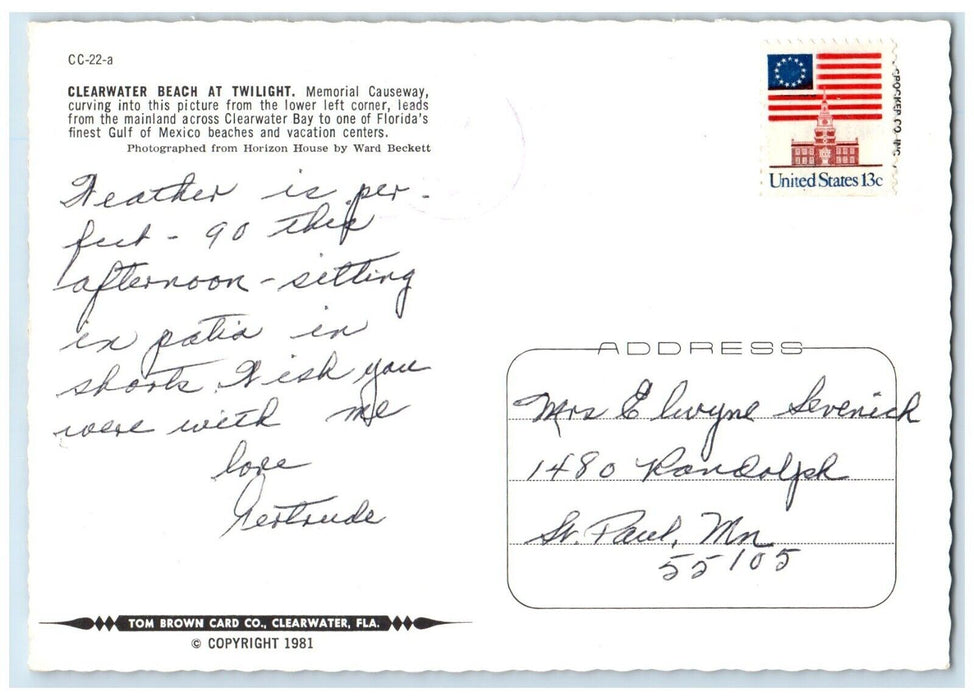 CC-22-a
CLEARWATER BEACH AT TWILIGHT. Memorial Causeway,
curving into this picture from the lower left corner, leads
from the mainland across Clearwater Bay to one of Florida's
finest Gulf of Mexico beaches and vacation centers.
Photographed from Horizon House by Ward Beckett
Weather is per-
fect - 90 this
afternoon - sitting
in patio in
shorts Wish you
were with me
love
Gertrude
TOM BROWN CARD CO., CLEARWATER, FLA.
© COPYRIGHT 1981
United States 13c
CROCKER CO. INC.
ADDRESS
Mrs Elwyne Sevenich
1480 Randolph
St. Paul, Mn
55105